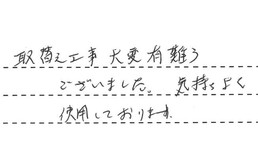 取替え工事 大変有難う
ございました。気持ちよく
使用しております。